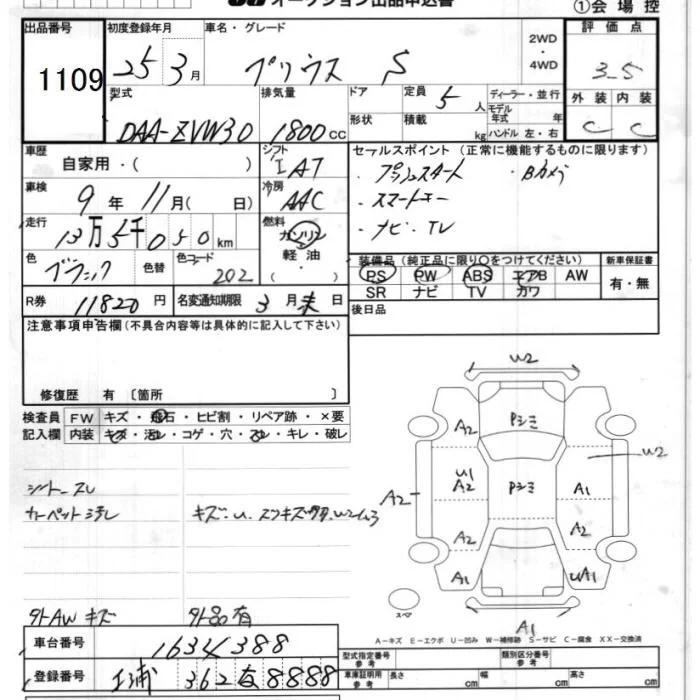 オークション出品申込書
①会場控
出品番号 初度登録年月 車名・グレード 2WD・4WD 評価点
1109 25 3月 プリウス S 3.5
型式 排気量 ドア 定員 5人 ディーラー・並行 外装 内装
DAA-ZVW30 1800cc 形状 積載 kg モデル年式 年 ハンドル 左・右 C C
車歴 シフト セールスポイント(正常に機能するものに限ります)
自家用・( ) IAT ・プッシュスタート ・Bカメラ
車検 冷房 ・スマートキー
9年 11月( 日) AAC ・ナビ・TV
走行 燃料
13万5千050km ガソリン
軽油
・
( )
装備品(純正品に限り○をつけてください) 新車保証書
色 色替 色コード PS PW ABS エアB AW 有・無
ブラック 202 SR ナビ TV カワ
R券 11820円 名変通知期限 3月末日 後日品
注意事項申告欄(不具合内容等は具体的に記入して下さい)
修復歴 有〔箇所 〕
検査員 FW キズ・飛石・ヒビ割・リペア跡・×要
記入欄 内装 キズ・汚レ・コゲ・穴・スレ・キレ・破レ
シートスレ
カーペット汚レ
外AW キズ 外品有
W2
A2 Pシミ
U1 W2
A2 A2 Pシミ A1
A2 A2
A1 UA1
スペア
A1
A-キズ E-エクボ U-凹み W-補修跡 S-サビ C-腐食 XX-交換済
車台番号 1634388
登録番号 362 8888
型式指定番号 参考 類別区分番号 参考
車庫証明用 参考 長さ cm 幅 cm 高さ cm